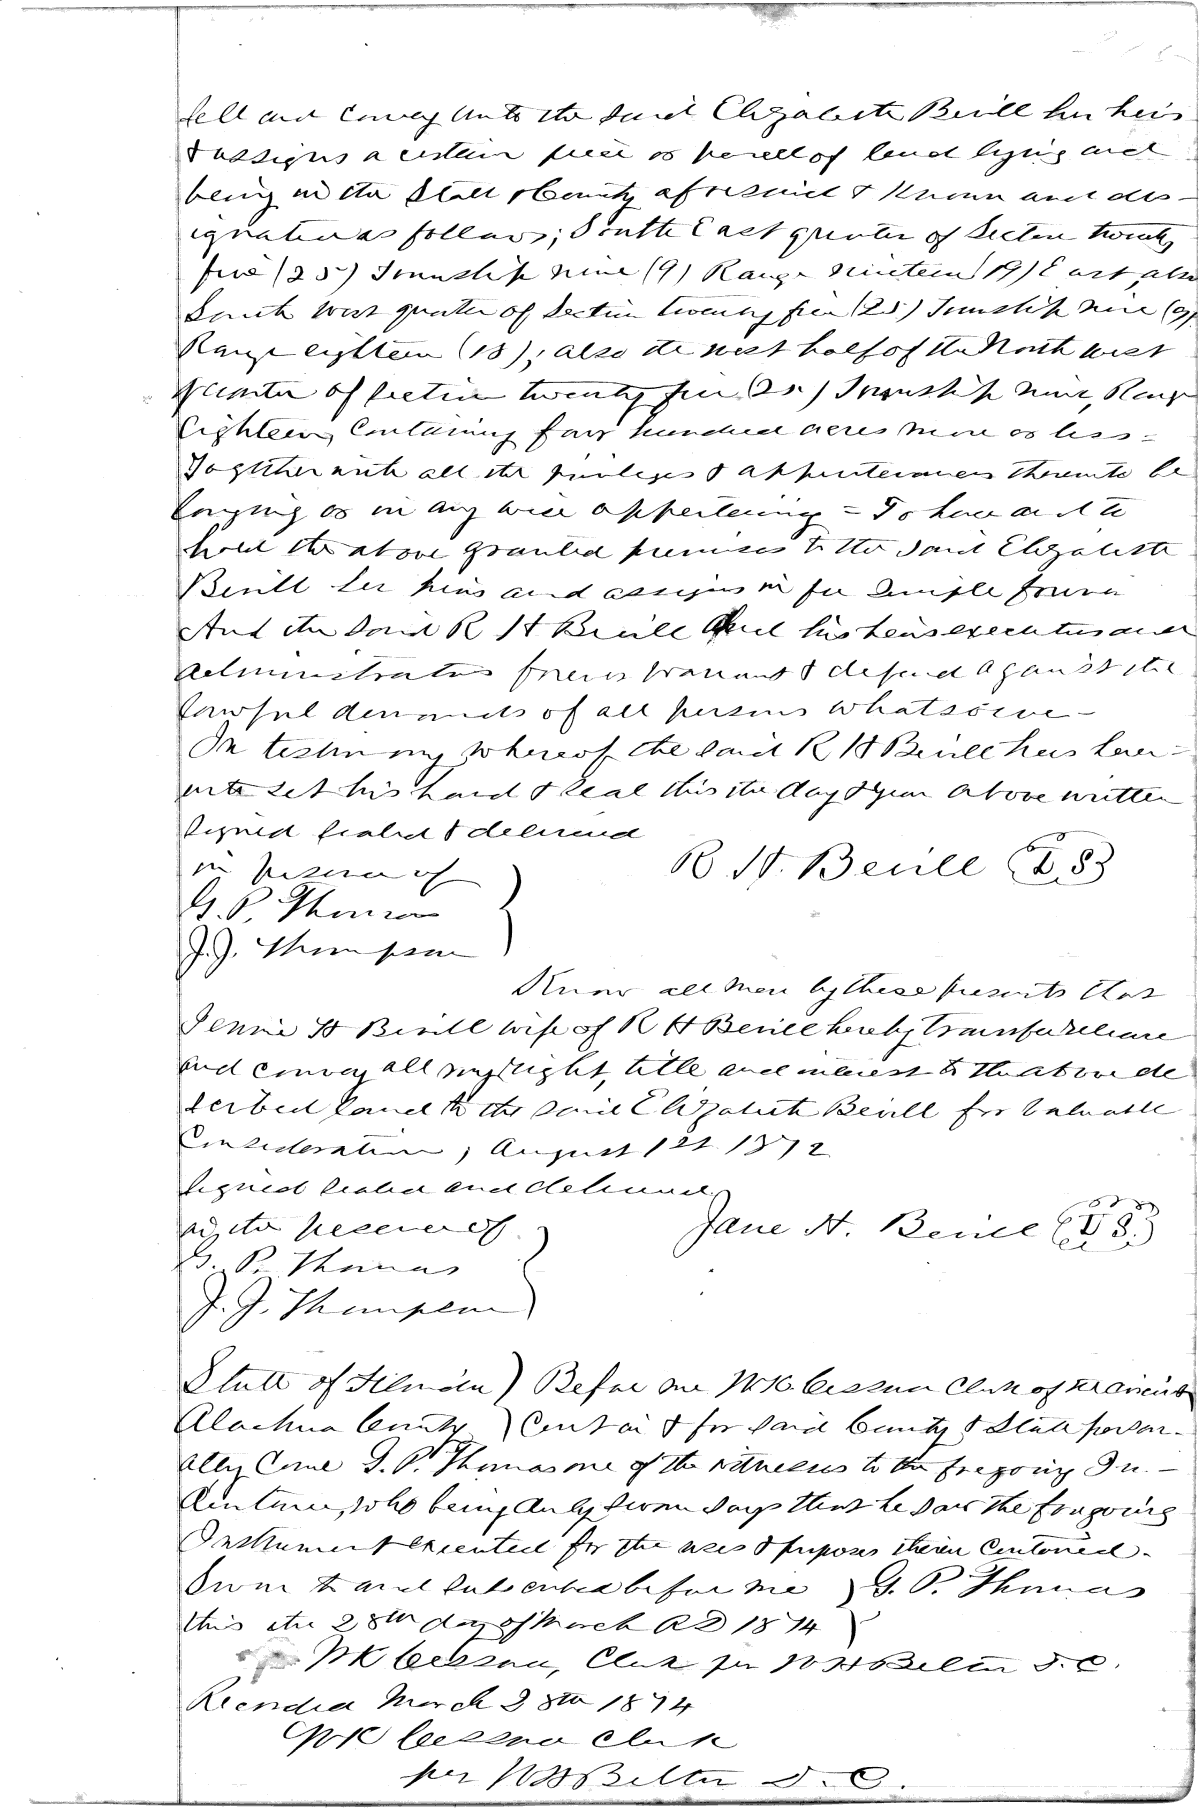 Sell and convey unto the Said Elizabeth Bevill her heirs
& assigns a certain piece or parcell of land lying and
being in the State & County aforesaid & Known and des-
ignated as follows; South East quarter of Section twenty
five (25) Township nine (9) Range nineteen (19) East, also
South West quarter of Section twenty five (25) Township nine (9)
Range eighteen (18); also the west half of the North west
quarter of Section twenty five (25) Township nine, Range
Eighteen, Containing four hundred acres more or less =
Together with all the privileges & appertenances thereunto be
longing or in any wise appertaining = To have and to
hold the above granted premises to the Said Elizabeth
Bevill her heirs and assigns in fee Simple forever
And the Said R H Bevill and his heirs executors and
administrators forever warrant & defend against the
lawful demands of all persons whatsoever -
In testimony whereof the Said R H Bevill has here =
unto Set his hand & Seal this the day & year above written
Signed Sealed & delivered
in presence of
R. H. Bevill (L S)
G. P. Thomas
J. J. Thompson
Know all Men by these presents that
Jennie H Bevill wife of R H Bevill hereby transfer release
and convey all my right, title and interest to the above de
scribed land to the Said Elizabeth Bevill for Valuable
Consideration, August 1st 1872
Signed Sealed and delivered
in the presence of
Jane H. Bevill (L S.)
G. P. Thomas
J. J. Thompson
State of Florida ) Before me W. K. Cessna Clerk of the Circuit
Alachua County ) Court in & for Said County & State person-
ally Came G. P. Thomas one of the witnesses to the foregoing In -
denture, who being duly Sworn Says that he Saw the foregoing
Instrument executed for the uses & purposes therein Contained.
Sworn to and Subscribed before me ) G. P. Thomas
this the 28th day of March A D 1874 )
W K Cessna, Clerk per W H Belton D. C.
Recorded March 28th 1874
W K Cessna Clerk
per W H Belton D. C.